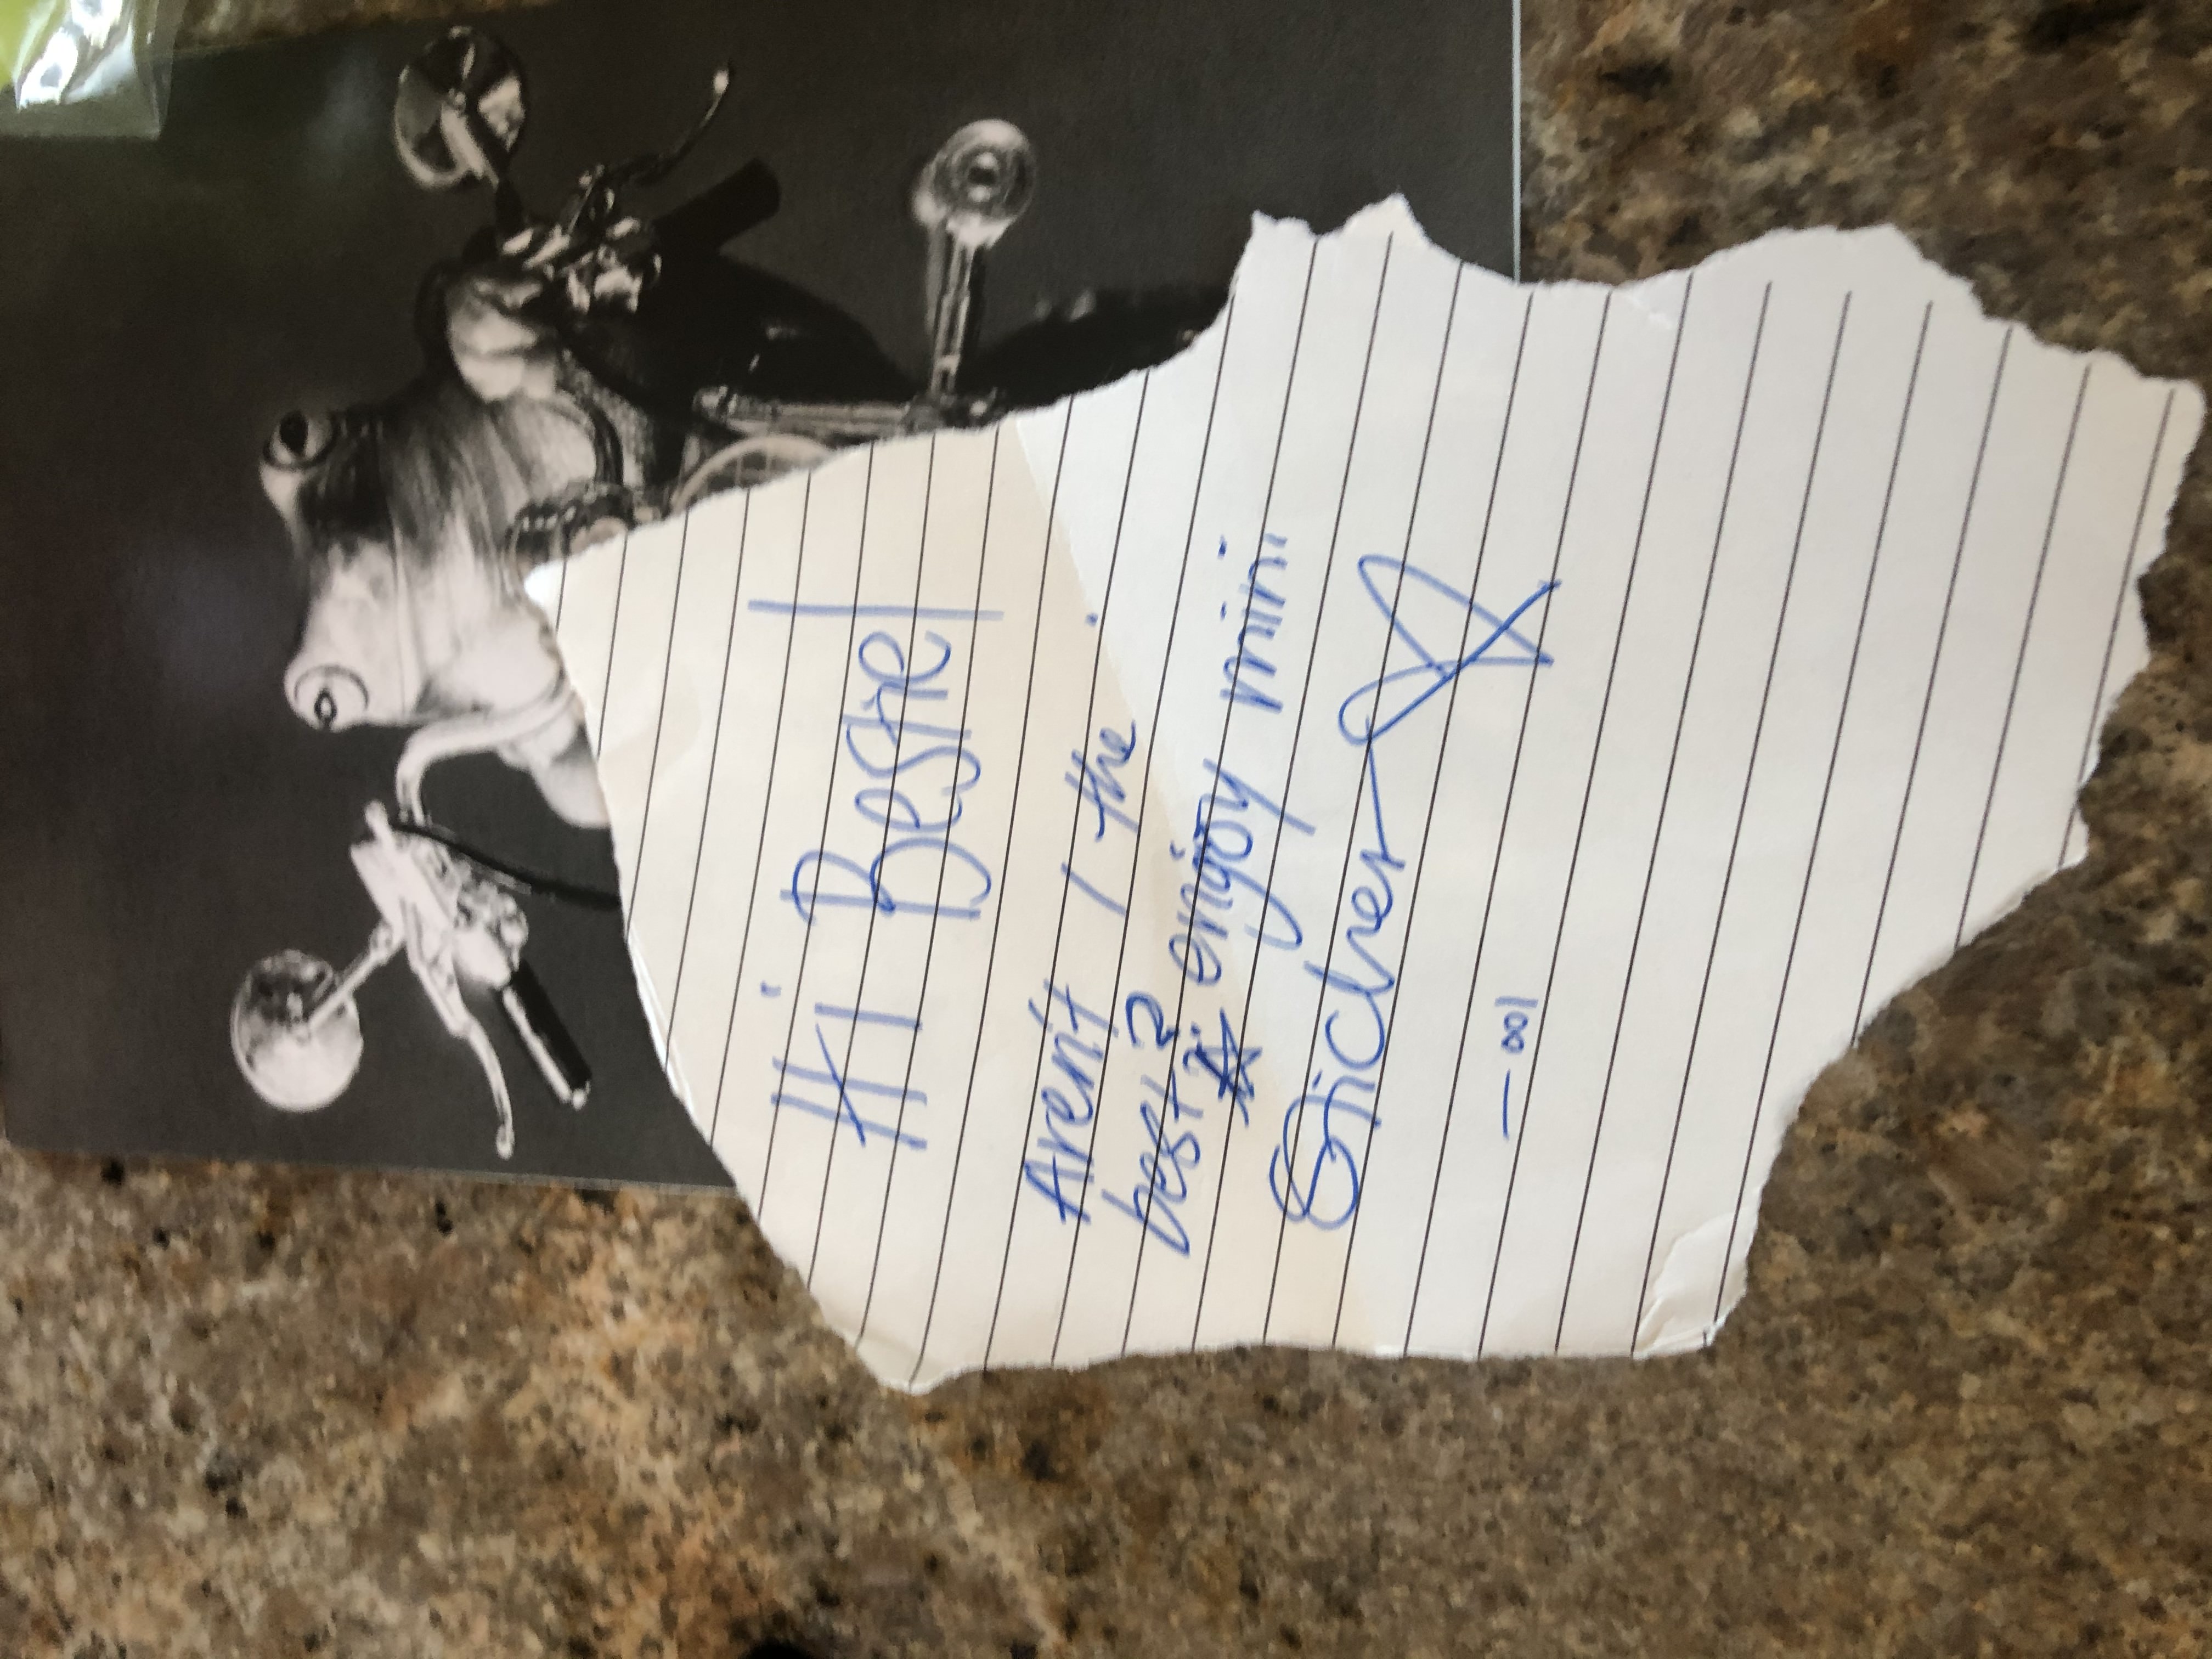 Hi Bestie!
Aren't I the
best? enjoy mini
Sticker
—001